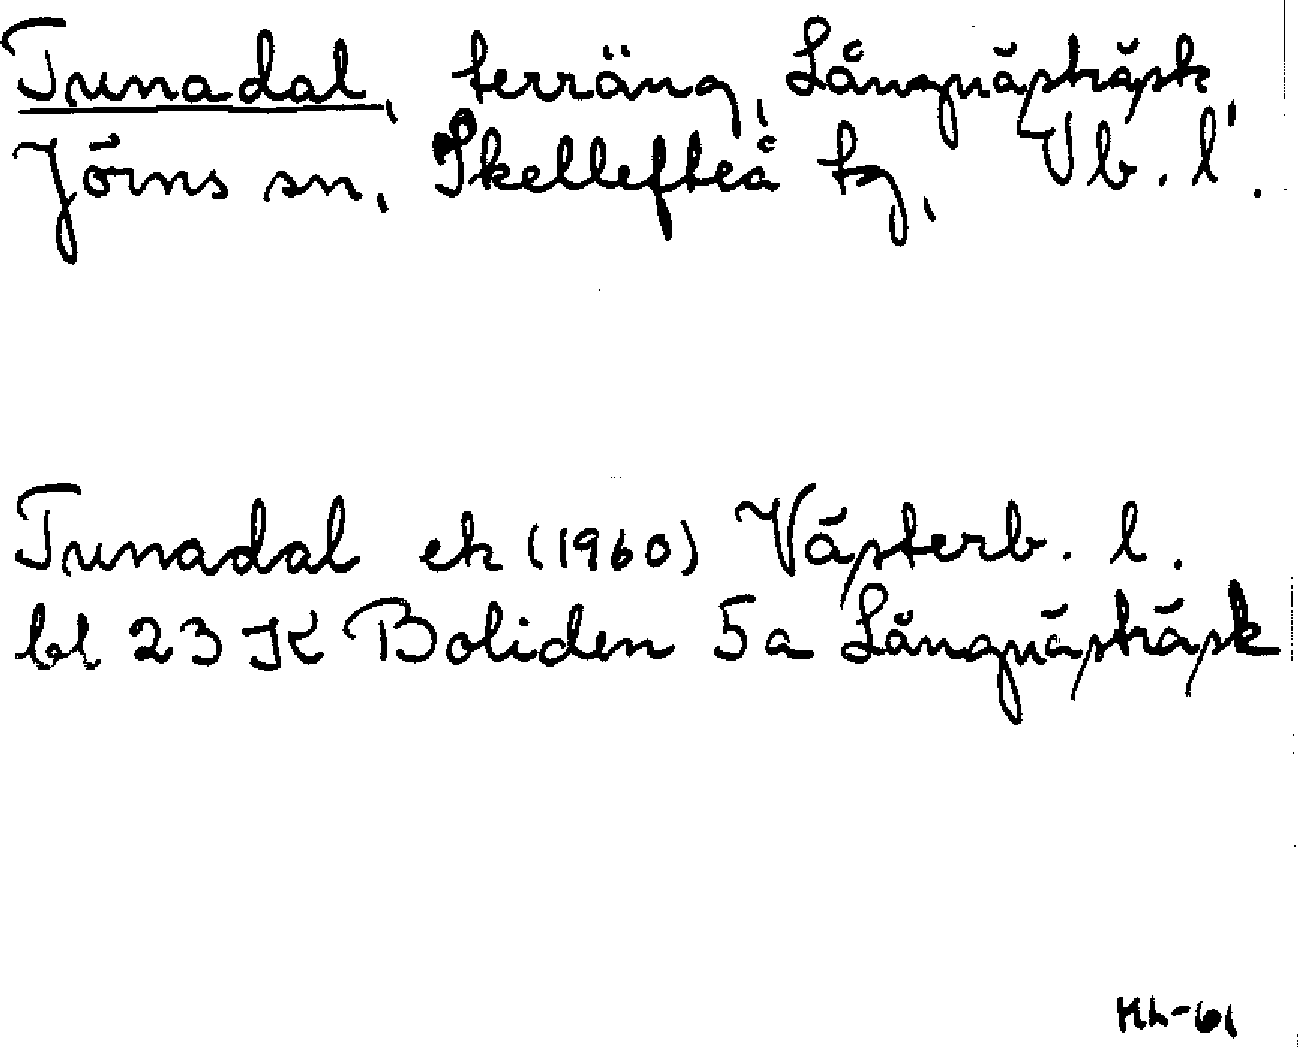 Tunadal, terräng, Långnästräsk,
Jörns sn, Skellefteå tg, Vb. l.
Tunadal ek (1960) Västerb. l.
bl 23 K Boliden 5a Långnästräsk
HL-61